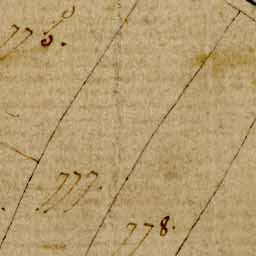 776.
777.
778.